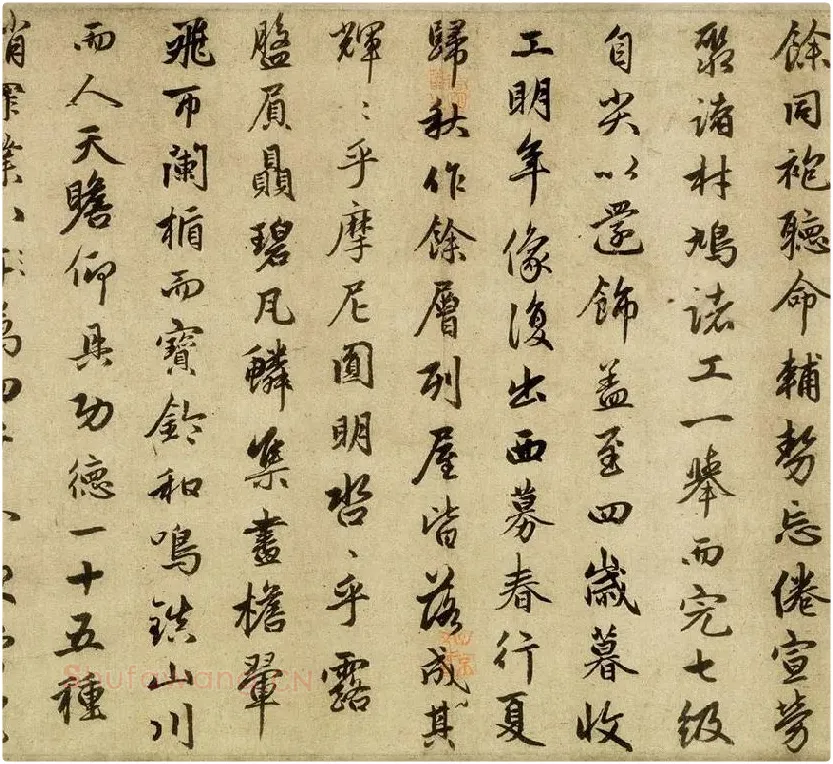 餘同袍聽命輔勢忘倦宣勞
聚諸材鳩諸工一舉而完七級
自尖以還飾蓋至四歲暮收
工明年像復出西募春行夏
歸秋作餘層列屋皆落成其
輝〻乎摩尼圓明沓〻乎露
盤屓贔碧瓦鱗集畫檐翬
飛而闌楯而寶鈴和鳴鎮山川
而人天瞻仰具功德一十五種
Shufawang.CN